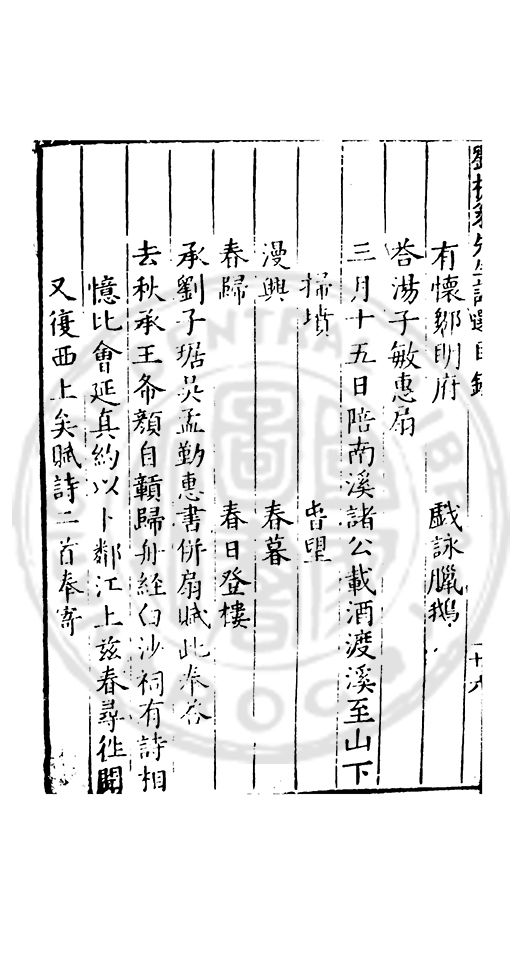 劉槎翁先生詩選目錄
有懷鄒明府　戲詠臘鵝
答湯子敏惠扇
三月十五日陪南溪諸公載酒渡溪至山下
掃墳　旾望
漫興　春暮
春歸　春日登樓
承劉子琚吳孟勤惠書併扇賦此奉答
去秋承王希顏自贛歸舟經白沙祠有詩相
憶比會延真約以卜鄰江上茲春尋徃聞
又復西上矣賦詩二首奉寄